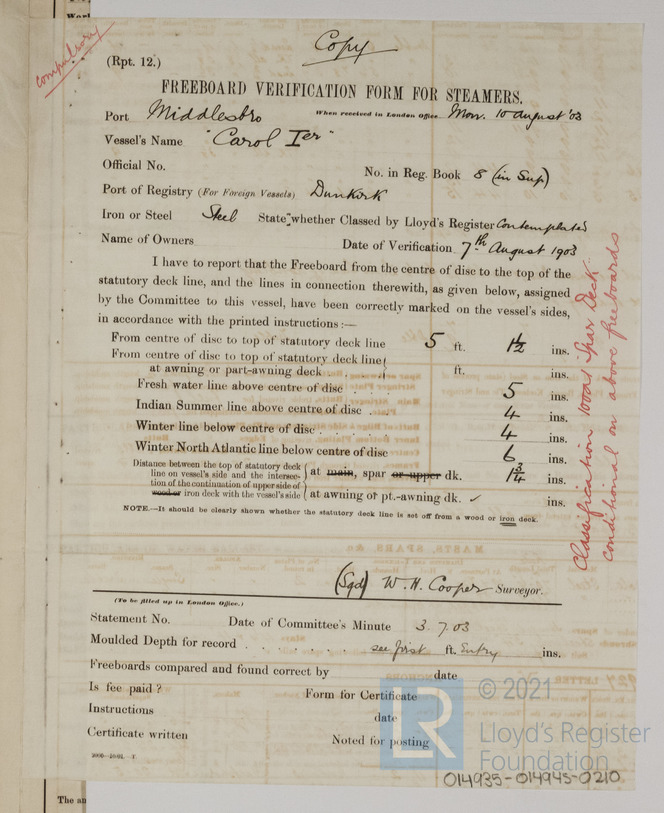 compulsory
Copy
(Rpt. 12.)
FREEBOARD VERIFICATION FORM FOR STEAMERS.
Port Middlesbro When received in London Office Mon. 10 August '03
Vessel's Name "Carol Ier"
Official No. No. in Reg. Book 8 (in Sup)
Port of Registry (For Foreign Vessels) Dunkirk
Iron or Steel Steel State whether Classed by Lloyd's Register Contemplated
Name of Owners Date of Verification 7th August 1903
I have to report that the Freeboard from the centre of disc to the top of the
statutory deck line, and the lines in connection therewith, as given below, assigned
by the Committee to this vessel, have been correctly marked on the vessel's sides,
in accordance with the printed instructions :—
From centre of disc to top of statutory deck line 5 ft. 1½ ins.
From centre of disc to top of statutory deck line
at awning or part-awning deck ft. ins.
Fresh water line above centre of disc 5 ins.
Indian Summer line above centre of disc 4 ins.
Winter line below centre of disc 4 ins.
Winter North Atlantic line below centre of disc 6 ins.
Distance between the top of statutory deck
line on vessel's side and the intersec-
tion of the continuation of upper side of
wood or iron deck with the vessel's side
at main, spar or upper dk. 1¾ ins.
at awning or pt.-awning dk. ✓ ins.
NOTE.—It should be clearly shown whether the statutory deck line is set off from a wood or iron deck.
Classification 100A1 Spar Deck
conditional on above freeboards
(Sgd) W. H. Cooper Surveyor.
(To be filled up in London Office.)
Statement No. Date of Committee's Minute 3.7.03
Moulded Depth for record see first ft. Entry ins.
Freeboards compared and found correct by date
Is fee paid ? Form for Certificate
Instructions date
Certificate written Noted for posting
The an
LR
© 2021
Lloyd's Register
Foundation
014935-014945-0210